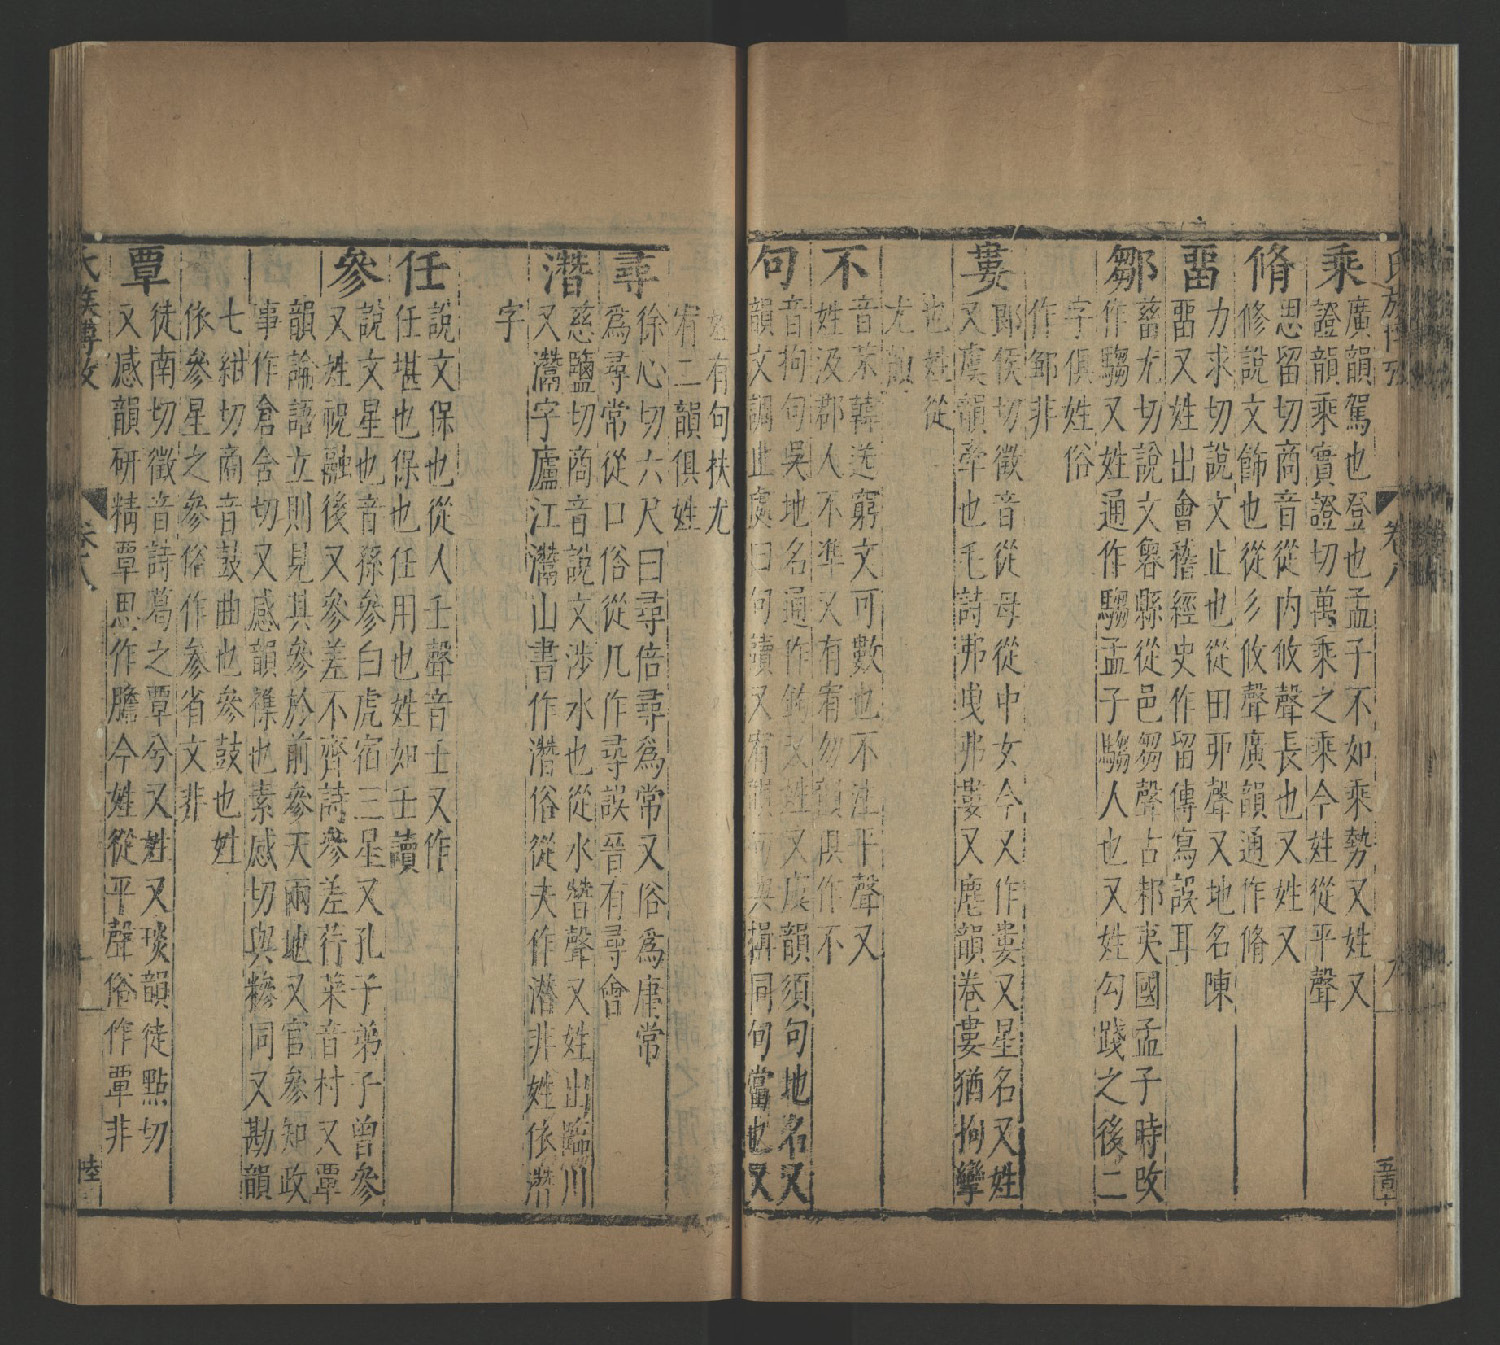 乘
廣韻駕也登也孟子不如乘勢又姓又
證韻乘實證切萬乘之乘今姓從平聲
脩
思留切商音從肉攸聲長也又姓又
修說文飾也從彡攸聲廣韻通作脩
畱
力求切說文止也從田丣聲又地名陳
畱又姓出會稽經史作留傳寫誤耳
鄒
菑尤切說文魯縣從邑芻聲古邾夷國孟子時改
作騶又姓通作騶孟子騶人也又姓勾踐之後二
字俱姓俗
作鄒非
婁
郎侯切徵音從母從中女今又作婁又星名又姓
又虞韻牽也毛詩弗曳弗婁又麌韻卷婁猶拘攣
也姓從
尤韻
不
音茱韓送窮文可數也不注平聲又
姓汲郡人不準又有宥勿韻俱作不
句
音拘句吳地名通作鉤又姓又麌韻須句地名又
韻文調止處曰句讀又宥韻句與搆同句當也又
姓有句扶尤
宥二韻俱姓
尋
徐心切六尺曰尋倍尋爲常又俗爲庸常
爲尋常從口俗從几作尋誤晉有尋會
潛
慈鹽切商音說文涉水也從水朁聲又姓出臨川
又灊字廬江灊山書作潛俗從夫作潜非姓依潛
字
任
說文保也從人壬聲音壬又作
任堪也保也任用也姓如壬讀
參
說文星也音孫參白虎宿三星又孔子弟子曾參
又姓祝融後又參差不齊詩參差荇菜音村又覃
韻論語立則見其參於前參天兩地又官參知政
事作倉含切又感韻雜也素感切與糝同又勘韻
七紺切商音鼓曲也參鼓也姓
依參星之參俗作叅省文非
覃
徒南切徵音詩葛之覃兮又姓又琰韻徒點切
又感韻研精覃思作膽今姓從平聲俗作覃非